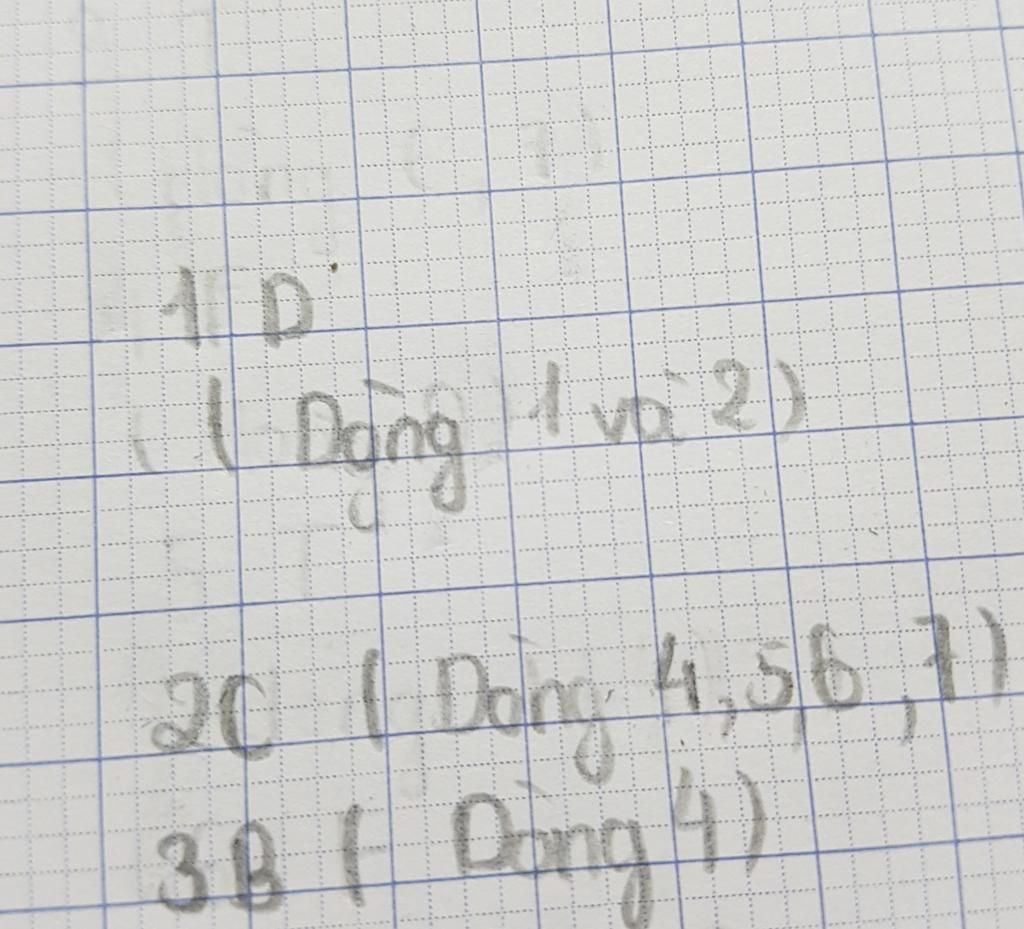 1 D
( Dòng 1 và 2)
2C ( Dòng 4, 5, 6, 7)
3B ( Dòng 4)